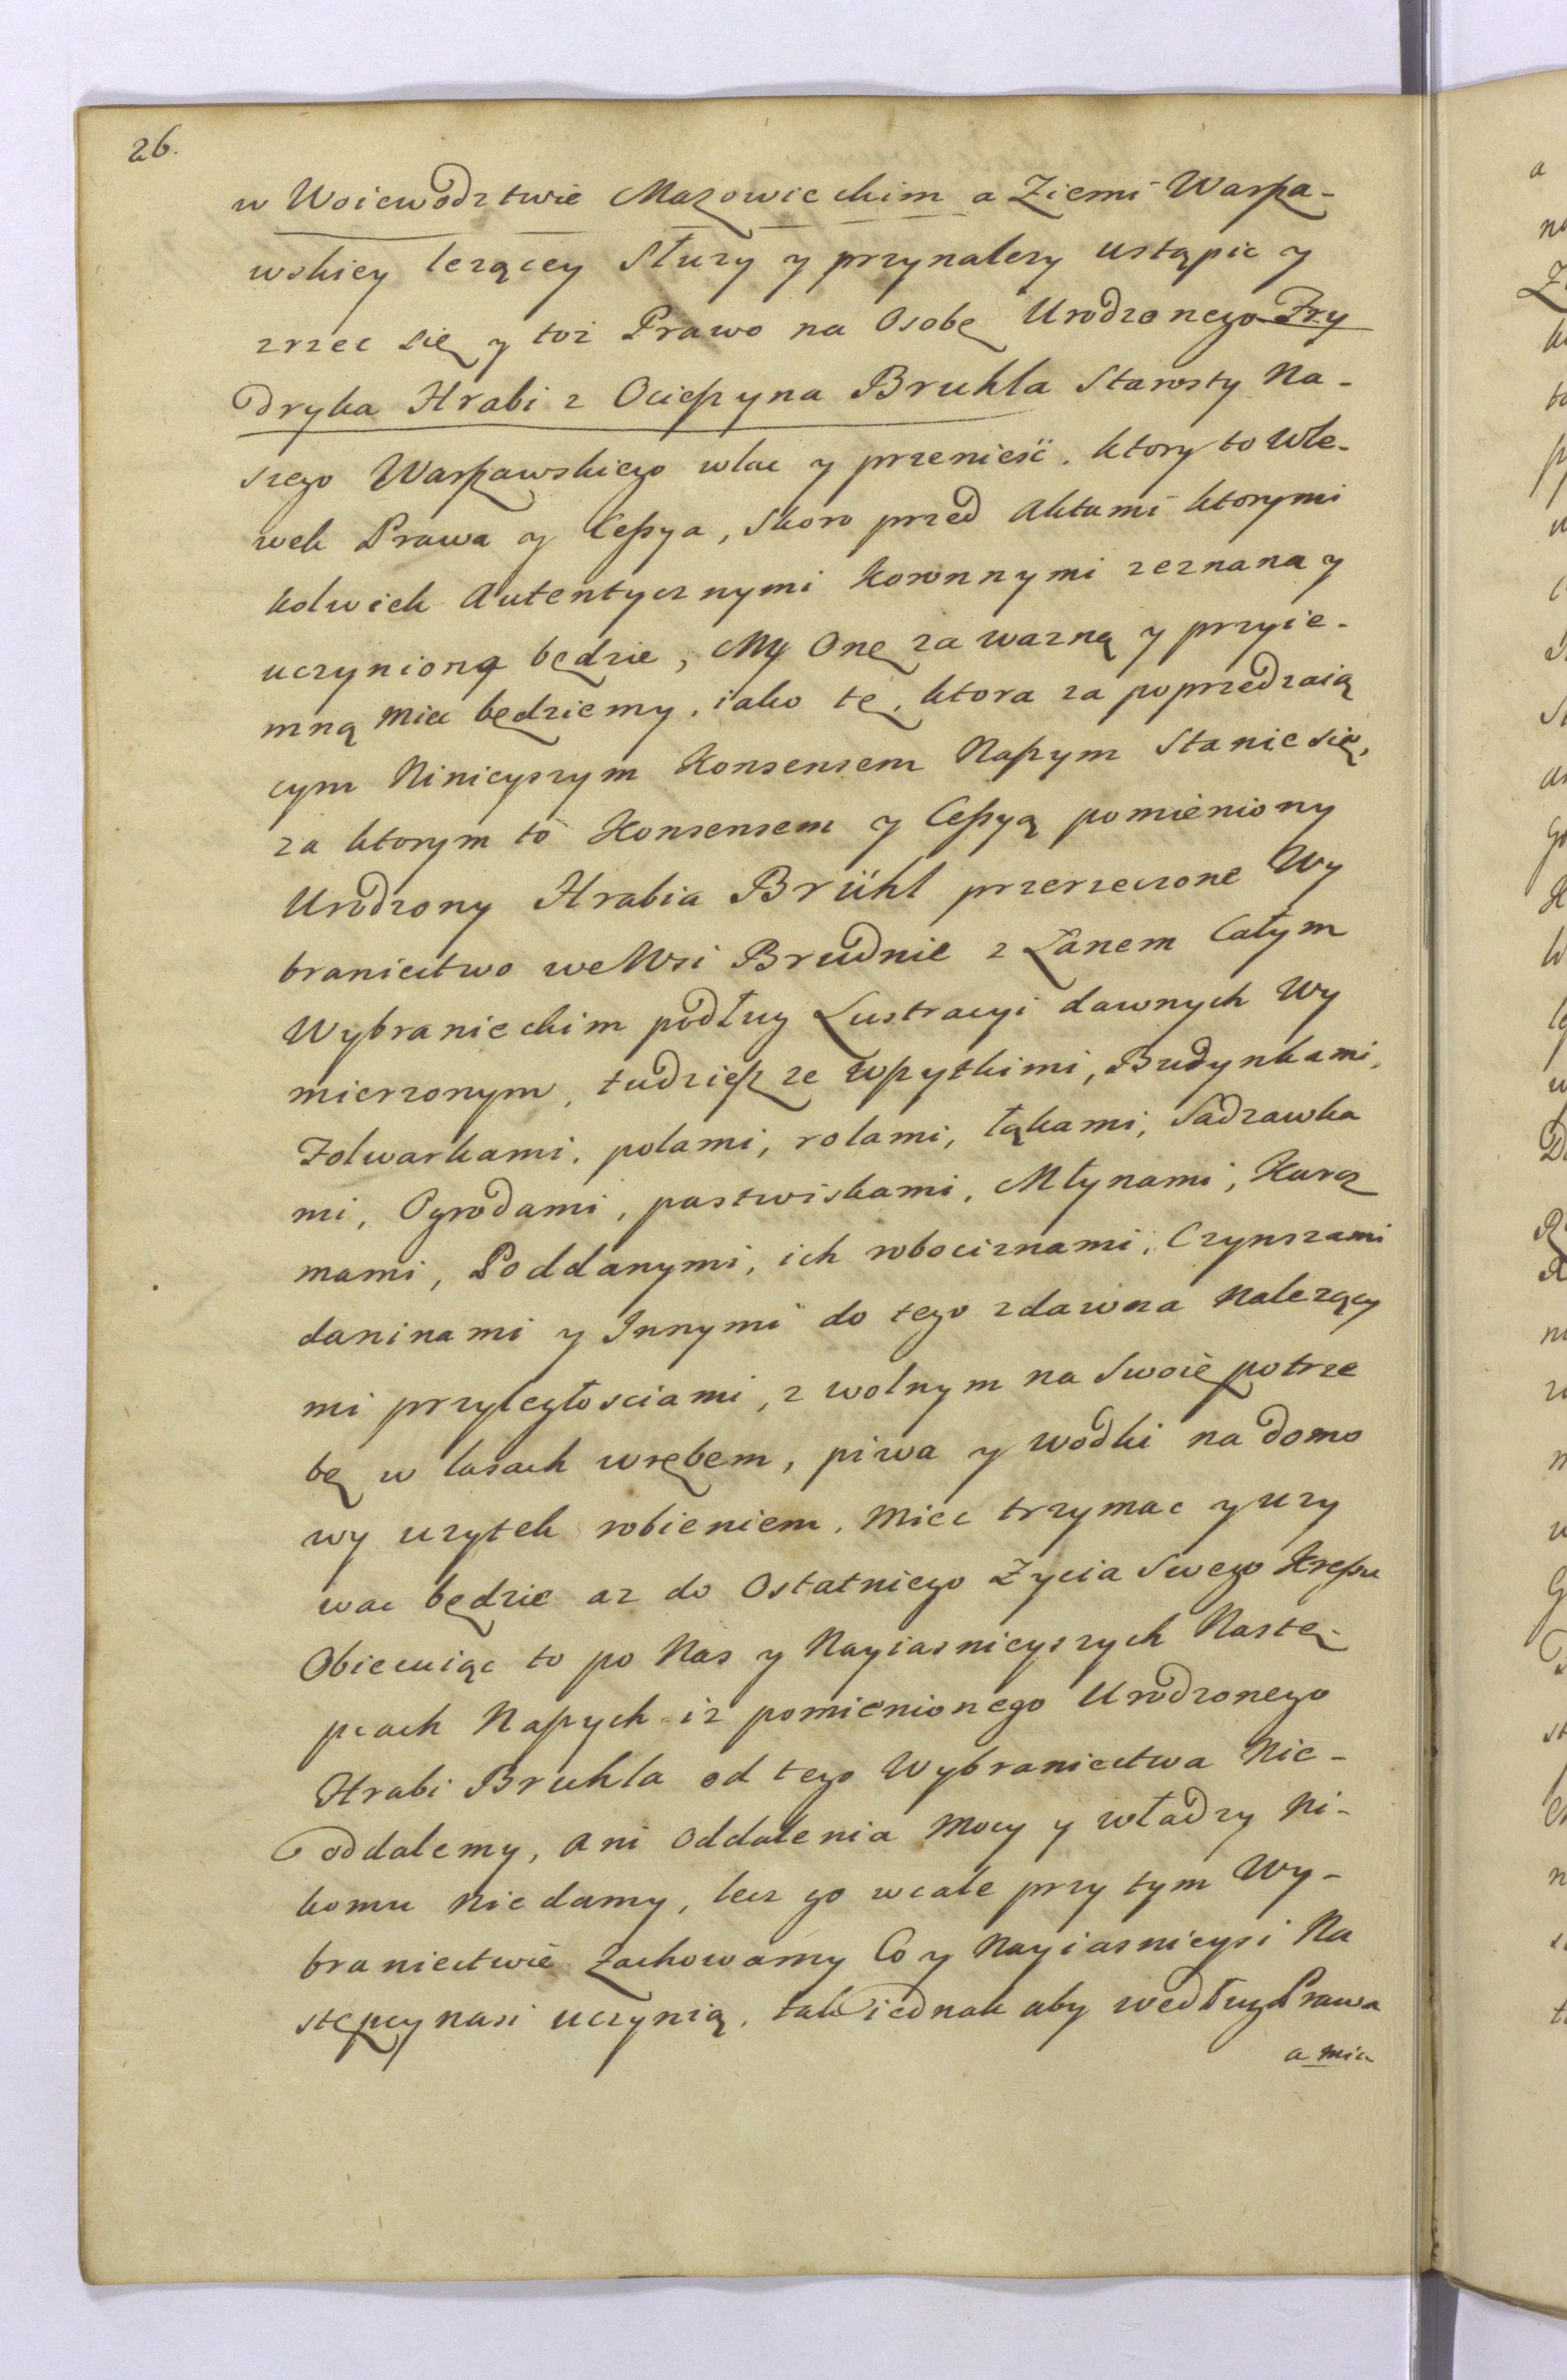 26.
w Woiewodztwie Mazowieckim a Ziemi Warsza-
wskiey lezącey Służy y przynalezy ustąpic y
zrzec się y toż Prawo na Osobę Urodzonego Fry
dryka Hrabi z Ocieszyna Bruhla Starosty Na-
szego Warszawskiego wlac y przenieść. ktory to Wle-
wek Prawa y Cessya, skoro przed Aktami ktorymi
kolwiek Autentycznymi koronnymi zeznana y
uczynioną będzie, My Onę za wazną y przyie-
mną miec będziemy, iako tę, ktora za poprzedzaią
cym Ninieyszym Konsensem Naszym Stanie się,
za ktorym to Konsensem y Cessyą pomieniony
Urodzony Hrabia Brühl przerzeczone Wy
braniectwo we Wsi Brudnie z Łanem Całym
Wybranieckim podług Lustracyi dawnych Wy
mierzonym, tudziesz ze wszytkimi, Budynkami,
Folwarkami, polami, rolami, łąkami, Sadzawka
mi, Ogrodami, pastwiskami, Młynami, Karcz
mami, Poddanymi, ich robociznami, Czynszami
daninami y Innymi do tego zdawna Nalezący
mi przyległosciami, z wolnym na Swoie potrze
bę w lasach wrębem, piwa y wodki na domo
wy uzytek robieniem, Miec trzymac y uzy
wac będzie az do Ostatniego Zycia Swego Kresu
Obiecuiąc to po Nas y Nayiasnieyszych Nastę-
pcach Naszych iz pomienionego Urodzonego
Hrabi Bruhla od tego Wybraniectwa Nie-
oddalemy, ani Oddalenia Mocy y władzy Ni-
komu Niedamy, lecz go wcale przy tym Wy-
braniectwie Zachowamy Co y Nayiasnieysi Na
stępcy nasi uczynią, tak iednak aby według Prawa
a mia